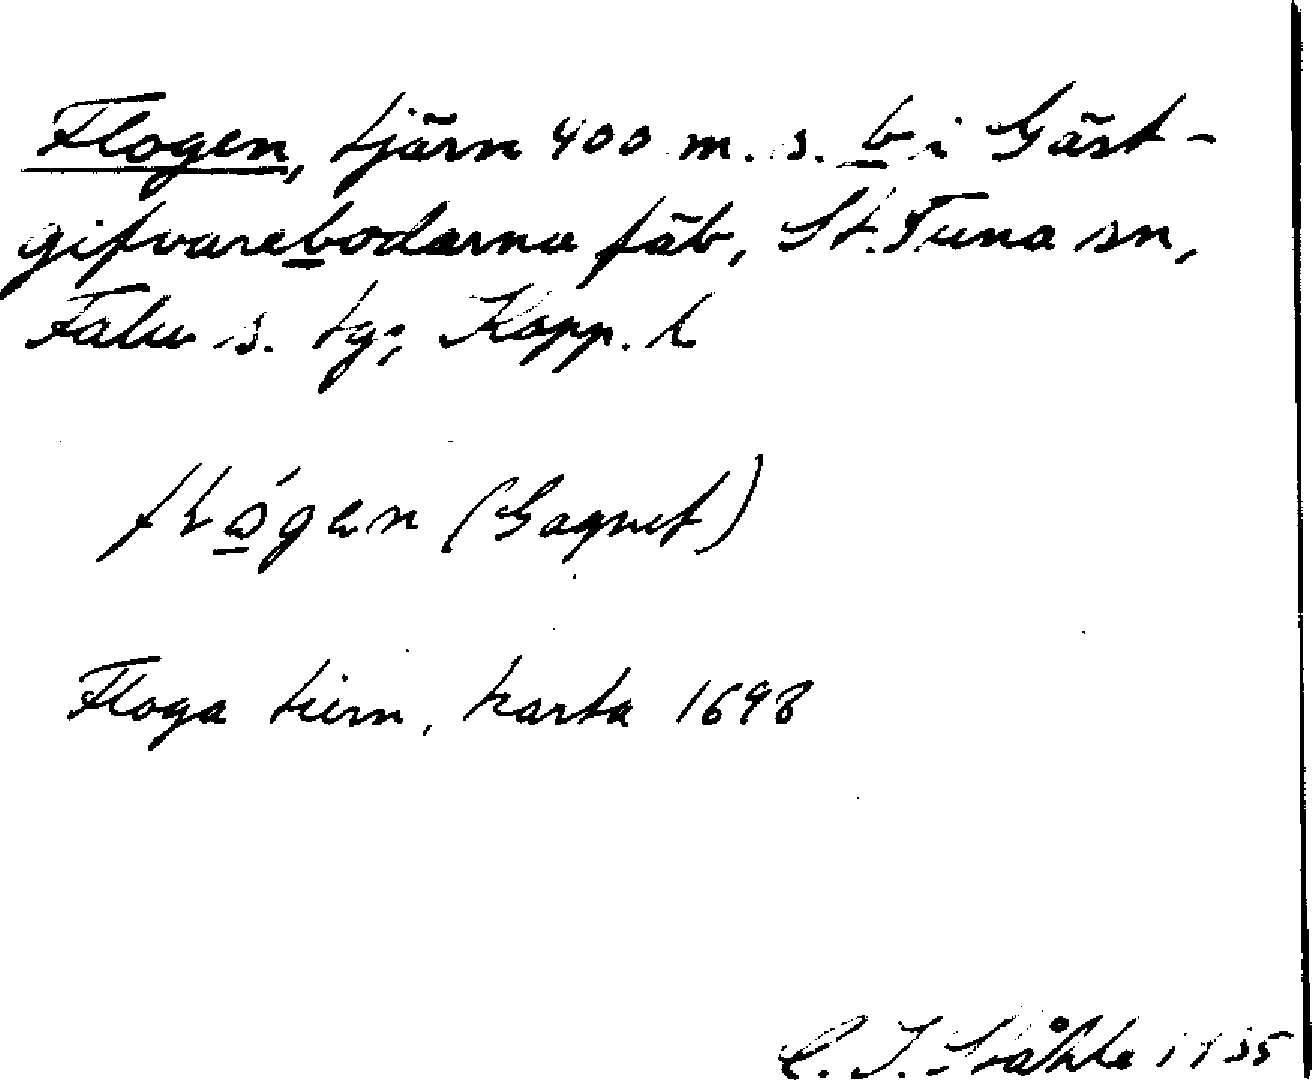 Flogen, tjärn 400 m. s. b i Gäst-
gifvarebodarna fäb, St. Tuna sn,
Falu s. tg; Kopp. l
flógen (Gagnef)
Floga tiern, karta 1698
C. I. Ståhle 1935